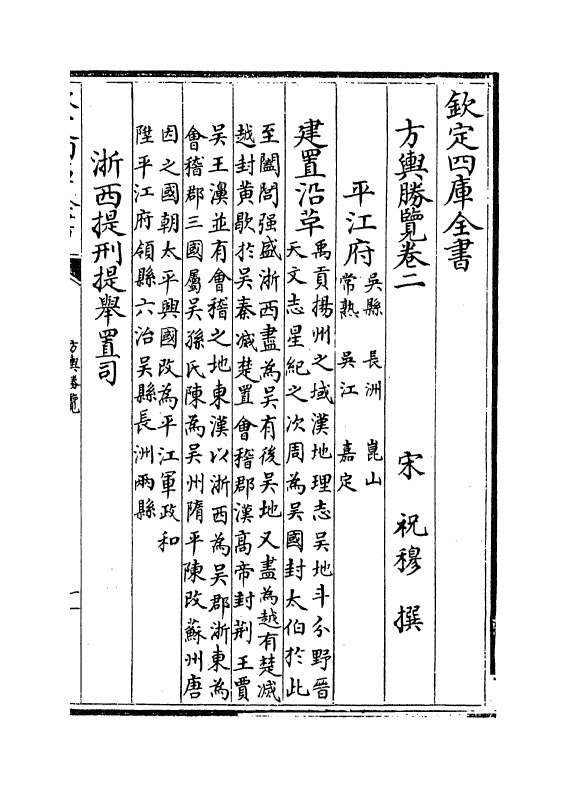 欽定四庫全書
方輿勝覽卷二
宋 祝穆 撰
平江府 吳縣 長洲 崑山
常熟 吳江 嘉定
建置沿革 禹貢揚州之域漢地理志吳地斗分野晉
天文志星紀之次周為吳國封太伯於此
至闔閭强盛浙西盡為吳有後吳地又盡為越有楚滅
越封黄歇於吳秦滅楚置會稽郡漢髙帝封荆王賈
吳王濞並有會稽之地東漢以浙西為吳郡浙東為
會稽郡三國屬吳孫氏陳為吳州隋平陳改蘇州唐
因之國朝太平興國改為平江軍政和
陞平江府領縣六治吳縣長洲兩縣
浙西提刑提舉置司
方輿勝覽
一